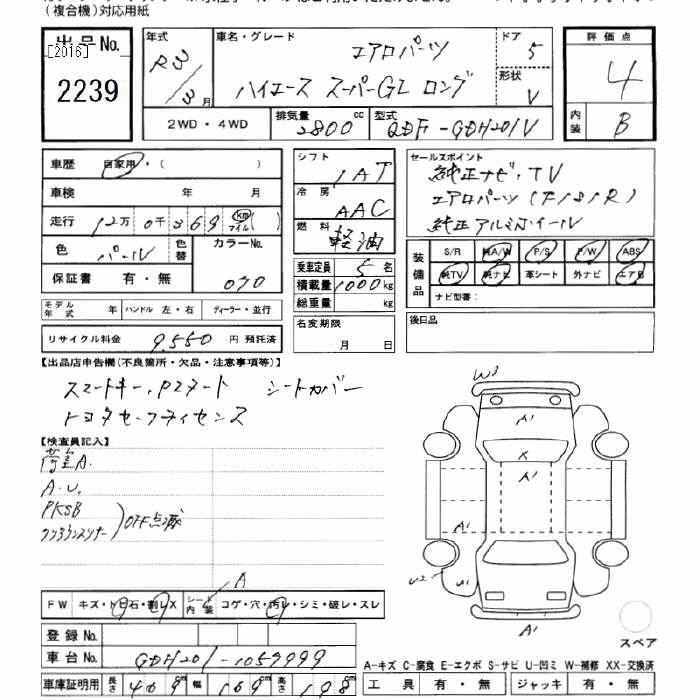 (複合機)対応用紙
出品No.
[2016]
2239
年式
R3/3月
車名・グレード
エアロパーツ
ハイエース スーパーGL ロング
ドア
5
形状
V
評価点
4
内装
B
2WD・4WD
排気量
2800cc
型式
QDF-GDH201V
車歴 自家用・( )
車検 年 月
走行 12万0千369km マイル( )
色 パール 色替 カラーNo.
070
保証書 有・無
モデル年式 年 ハンドル 左・右 ディーラー・並行
リサイクル料金 9,550 円 預託済
シフト
IAT
冷房
AAC
燃料
軽油
乗車定員 5名
積載量 1000kg
総重量 kg
名変期限
月 日
セールスポイント
純正ナビ、TV
エアロパーツ(F/S/R)
純正アルミホイール
装備品
S/R 純A/W P/S P/W ABS
純TV 純ナビ 革シート 外ナビ エアB
ナビ型番:
後日品
【出品店申告欄(不良箇所・欠品・注意事項等)】
スマートキー、Pスタート シートカバー
トヨタセーフティセンス
【検査員記入】
A.U.
PKSB
クリアランスソナー
OFF点滅
W3
A1
X
A1
A1
W2
U1
A1
A
FW キズ・トビ石・割レX シート内装 コゲ・穴・汚レ・シミ・破レ・スレ
登録No.
車台No. GDH201-1059999
車庫証明用 長さ 469cm 幅 169cm 高さ 198cm
スペア
A-キズ C-腐食 E-エクボ S-サビ U-凹ミ W-補修 XX-交換済
工具 有・無 ジャッキ 有・無